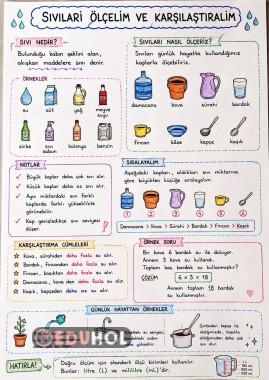 SIVILARI ÖLÇELİM VE KARŞILAŞTIRALIM
SIVI NEDİR?
Bulunduğu kabın şeklini alan,
akışkan maddelere sıvı denir.
ÖRNEKLER
su
süt
yağ
meyve
suyu
sirke
sıvı
sabun
kolonya
benzin
SIVILARI NASIL ÖLÇERİZ?
Sıvıları günlük hayatta kullandığımız
kaplarla ölçebiliriz.
damacana
kova
sürahi
bardak
fincan
kâse
kepçe
kaşık
NOTLAR
Büyük kaplar daha çok sıvı alır.
Küçük kaplar daha az sıvı alır.
Aynı miktardaki sıvı farklı
kaplarda farklı yükseklikte
görünebilir.
Kap genişledikçe sıvı seviyesi
düşer.
SIRALAYALIM
Aşağıdaki kapları, aldıkları sıvı miktarına
göre büyükten küçüğe sıralayalım.
1 2 3 4 5 6
Damacana > Kova > Sürahi > Bardak > Fincan > Kaşık
KARŞILAŞTIRMA CÜMLELERİ
Kova, sürahiden daha fazla su alır.
Bardak, fincandan daha fazla su alır.
Fincan, kaşıktan daha fazla su alır.
Damacana, kova dan daha fazla su alır.
Kaşık, kepçeden daha az su alır.
ÖRNEK SORU
Bir kova 6 bardak su ile doluyor.
Annem 3 kova su kullandı.
Toplam kaç bardak su kullanmıştır?
ÇÖZÜM
6 x 3 = 18
Annem toplam 18 bardak
su kullanmıştır.
GÜNLÜK HAYATTAN ÖRNEKLER
EDUHOL
HATIRLA!
Doğru ölçüm için standart ölçü birimleri kullanılır.
Bunlar: litre (L) ve mililitre (mL)'dir.